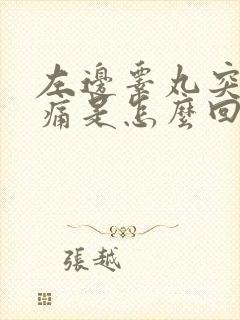 左邊睪丸突
痛是怎麼回
張越